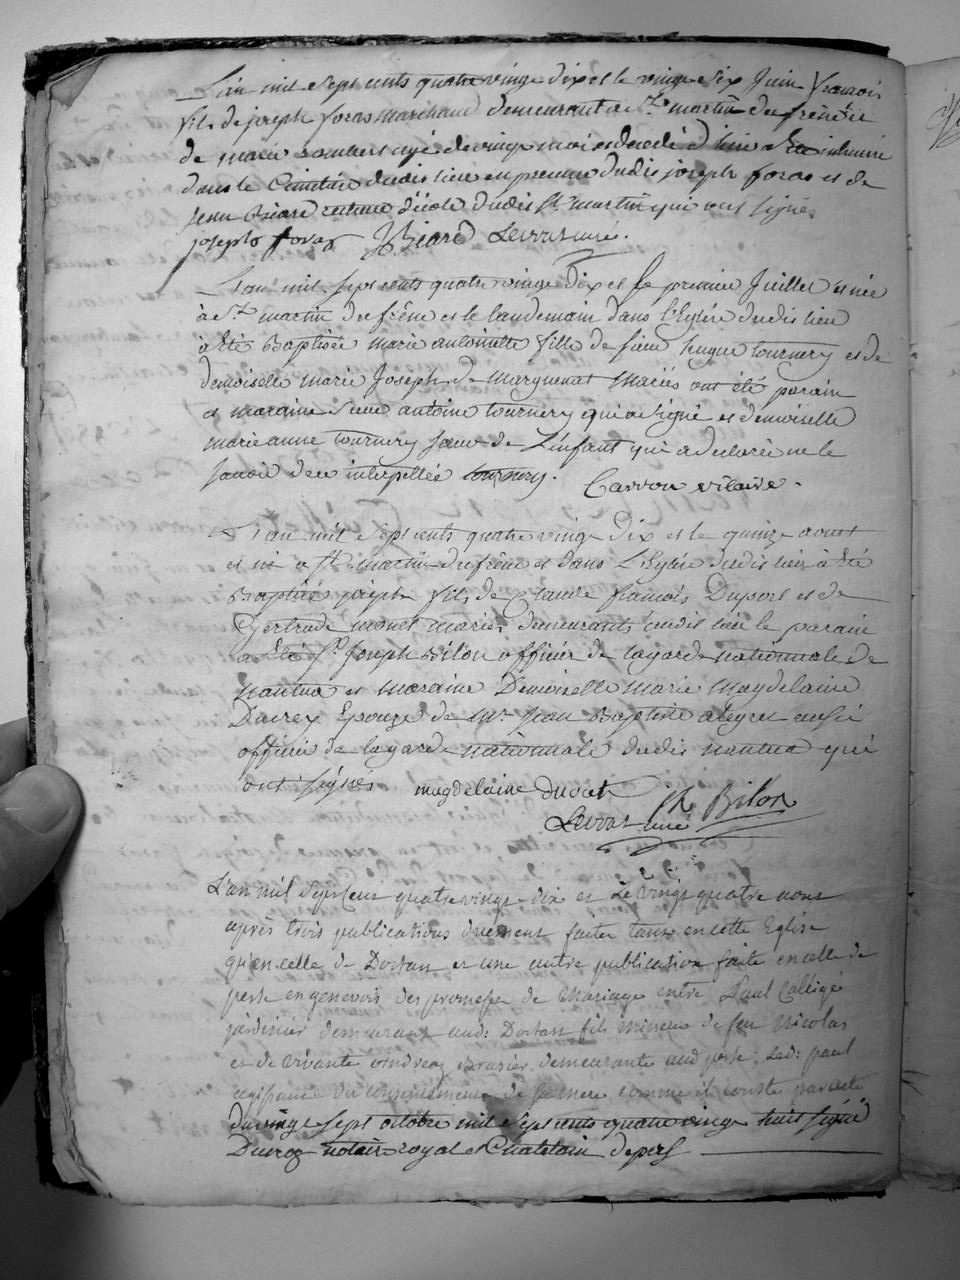 L'an mil sept cents quatre vingt dix et le vingt six Juin francois
fils de joseph foras marchand demeurant a St martin du frêne et
de marie Lambert agé de vingt moi decedé d'hier a Eté inhumé
dans le Cimetiére dudit lieu en presence dudit joseph foras et de
jean Biard recteur d'école dudit St martin qui ont signés
joseph foras JBiard Levrat curé.
L'an mil sept cents quatre vingt dix et le premier Juillet est née
à St martin du frêne et le lendemain dans l'Eglise dudit lieu
à été Baptisée marie antoinette fille de sieur hugue tournery et de
demoiselle marie Joseph de Marquenat Mariés ont été parain
et maraine sieur antoine tournery qui a signé et demoiselle
marie anne tournery soeur de L'enfant qui a declarée ne le
savoir de ce interpellée tournery. Carron vicaire.
L'an mil sept cents quatre vingt dix et le quinze aoust
est né a St martin du frêne et dans L'Eglise dudit lieu à Eté
Baptisé joseph fils de Claude francois Duport et de
Gertrude monet mariés demeurants audit lieu le parain
a Eté Sr Joseph Bilon officier de la garde nationnale de
nantua et Maraine Demoiselle Marie Magdelaine
Ducret Epouze de Mr Jean Baptiste alegret aussi
officier de la garde nationnale dudit nantua qui
ont signés magdelaine ducret Jh Bilon
Levrat curé
L'an mil sept cent quatre vingt dix et Le vingt quatre aout
après trois publications duement faites tant en cette Eglise
qu'en celle de Dortan et une autre publication faite en celle de
perse en genevois des promesses de Mariage entre Paul Calligé
jardinier demeurant audt Dortan fils mineur de feu Nicolas
et de vivante Brasier demeurante audt perse, Ledt paul
agissant du consentement de sa mere comme il conste par acte
du vingt sept octobre mil sept cents quatre vingt huit signé
Ducroz notaire royal et Chatelain de pers